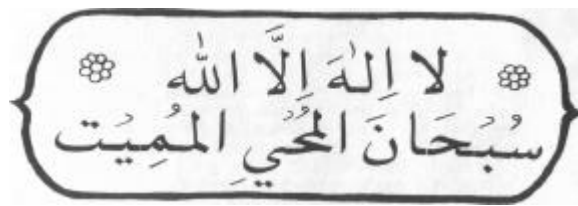 لا اِلٰهَ اِلَّا اللّٰه
سُبْحَانَ الْمُحْيِي الْمُمِيْت